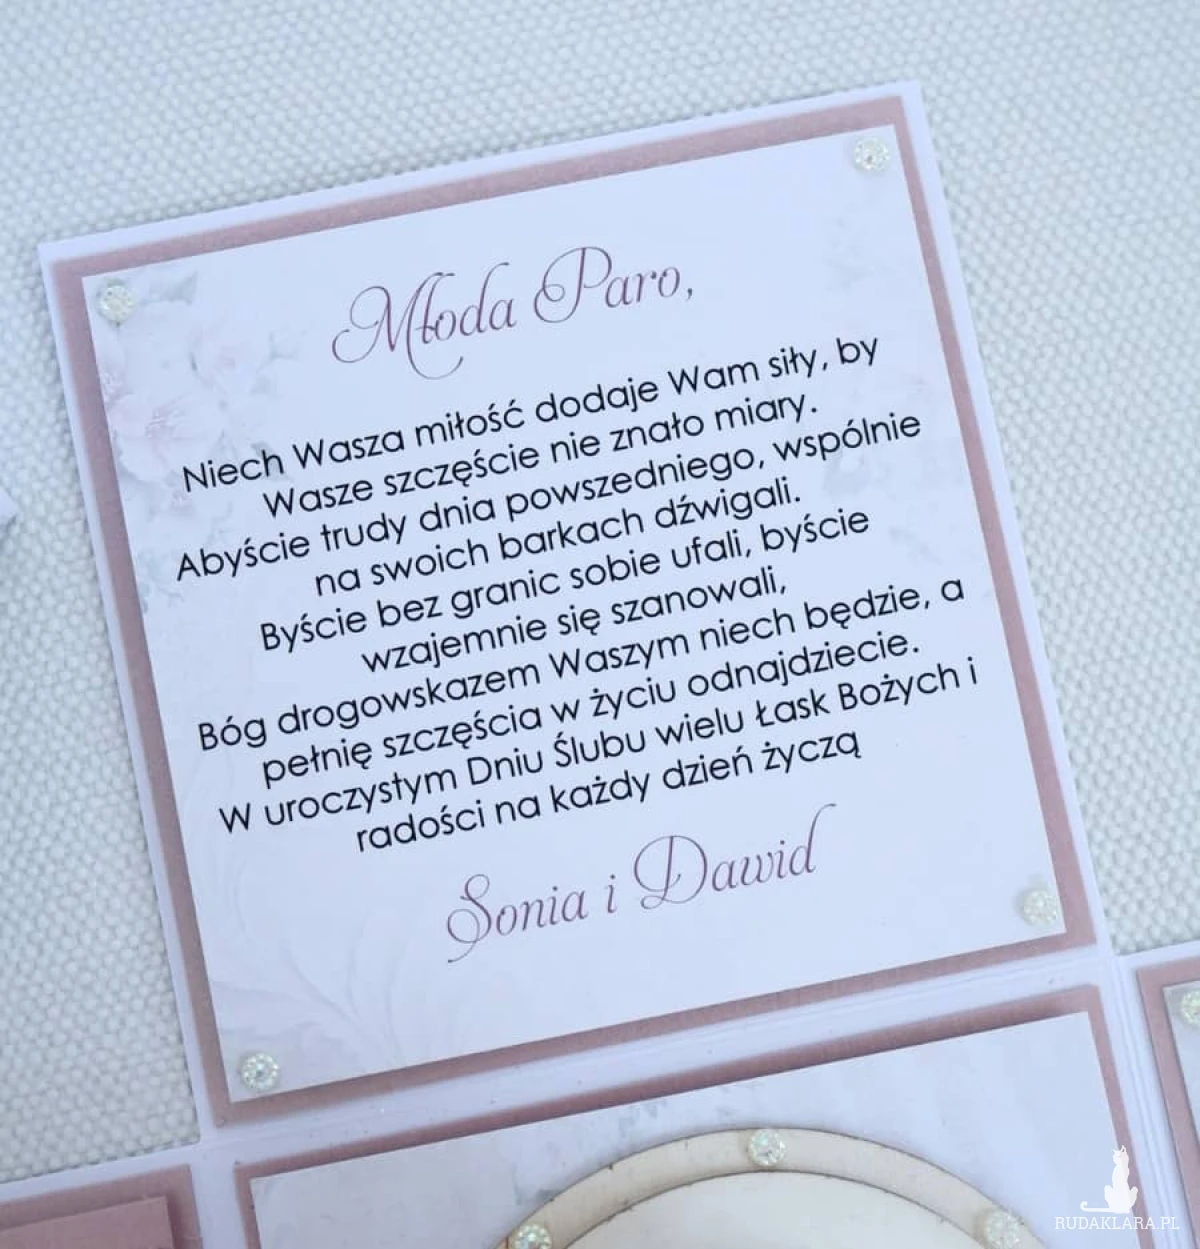 Młoda Paro,
Niech Wasza miłość dodaje Wam siły, by
Wasze szczęście nie znało miary.
Abyście trudy dnia powszedniego, wspólnie
na swoich barkach dźwigali.
Byście bez granic sobie ufali, byście
wzajemnie się szanowali,
Bóg drogowskazem Waszym niech będzie, a
pełnię szczęścia w życiu odnajdziecie.
W uroczystym Dniu Ślubu wielu Łask Bożych i
radości na każdy dzień życzą
Sonia i Dawid
RUDAKLARA.PL